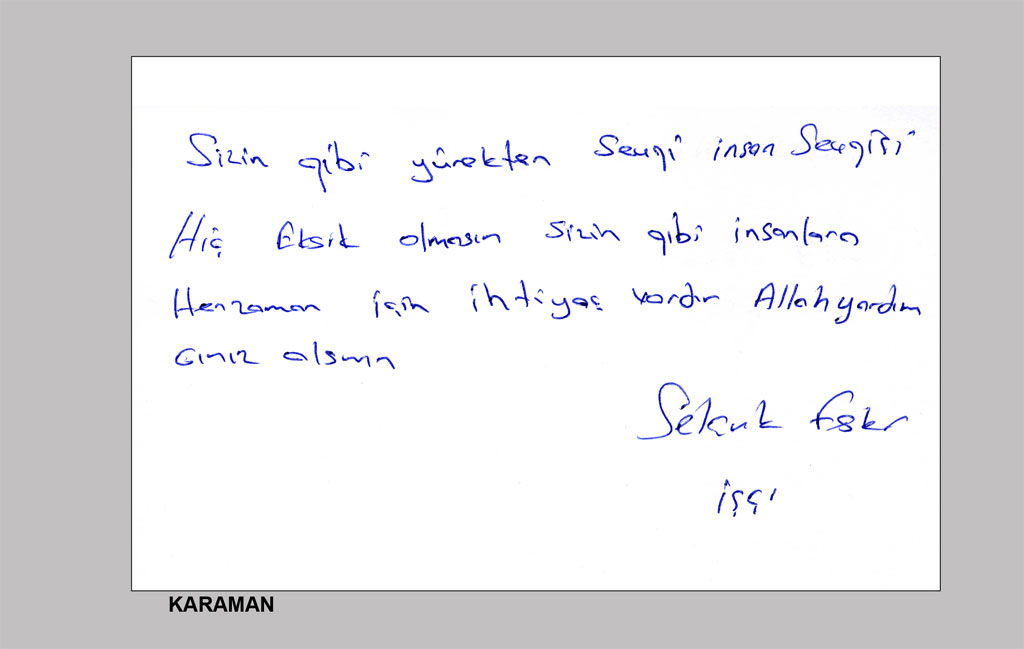 Sizin gibi yürekten Sevgi insan Sevgisi
Hiç Eksik olmasın Sizin gibi insanlara
Herzaman için ihtiyaç vardır Allah yardım
cınız olsun
Selçuk
işçi
KARAMAN